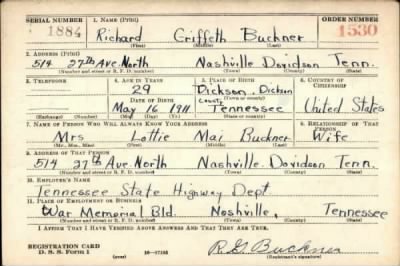 SERIAL NUMBER 1. NAME (Print) ORDER NUMBER
1884 Richard Griffeth Buckner 1530
(First) (Middle) (Last)
2. ADDRESS (Print)
514 27th Ave. North Nashville Davidson Tenn.
(Number and street or R. F. D. number) (Town) (County) (State)
3. TELEPHONE 4. AGE IN YEARS 5. PLACE OF BIRTH 6. COUNTRY OF CITIZENSHIP
29 Dickson, Dickson
DATE OF BIRTH (Town or county)
May 16 1911 Tennessee United States
(Exchange) (No.) (Mo.) (Day) (Yr.) (State or country)
7. NAME OF PERSON WHO WILL ALWAYS KNOW YOUR ADDRESS 8. RELATIONSHIP OF THAT PERSON
Mrs Lottie Mai Buckner Wife
(Mr., Mrs., Miss) (First) (Middle) (Last)
9. ADDRESS OF THAT PERSON
514 27th Ave. North Nashville Davidson Tenn.
(Number and street or R. F. D. number) (Town) (County) (State)
10. EMPLOYER'S NAME
Tennessee State Highway Dept
11. PLACE OF EMPLOYMENT OR BUSINESS
War Memorial Bld. Nashville, Tennessee
(Number and street or R. F. D. number) (Town) (County) (State)
I AFFIRM THAT I HAVE VERIFIED ABOVE ANSWERS AND THAT THEY ARE TRUE.
REGISTRATION CARD R G Buckner
D. S. S. Form 1 (over) (Registrant's signature)